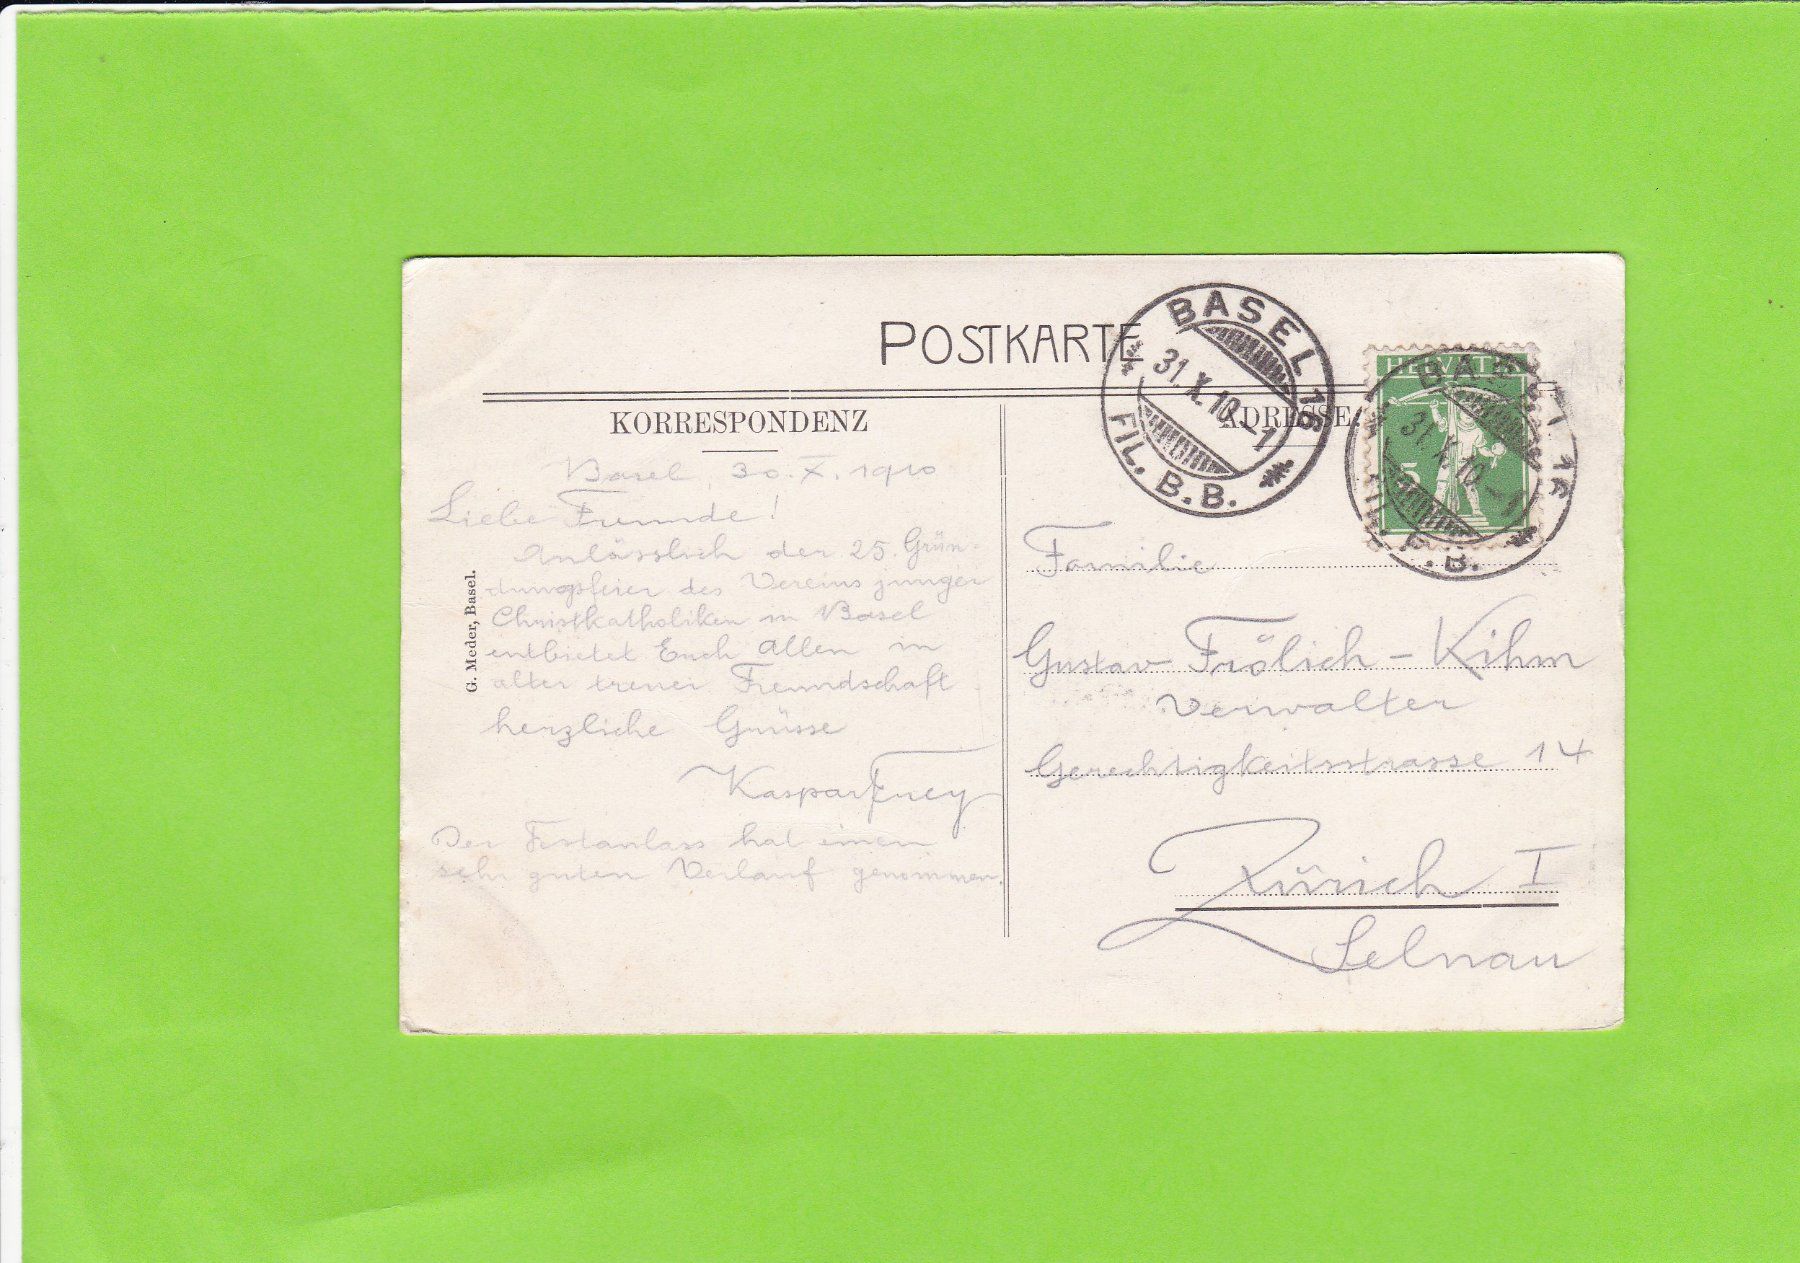 POSTKARTE
KORRESPONDENZ
Basel, 30. X. 1910
Liebe Freunde!
Anlässlich der 25. Grün-
dungsfeier des Vereins junger
Christkatholiken in Basel
entbietet Euch Allen in
alter treuer Freundschaft
herzliche Grüsse
Kaspar Frey
Der Festanlass hat einen
sehr guten Verlauf genommen.
G. Meder, Basel.
ADRESSE:
Familie
Gustav Frölich-Kihm
Verwalter
Gerechtigkeitsstrasse 14
Zürich I
Selnau
BASEL 16
31.X.10.-1
FIL. B.B.
HELVETIA
5
BASEL 16
31.X.10-1
FIL. B.B.